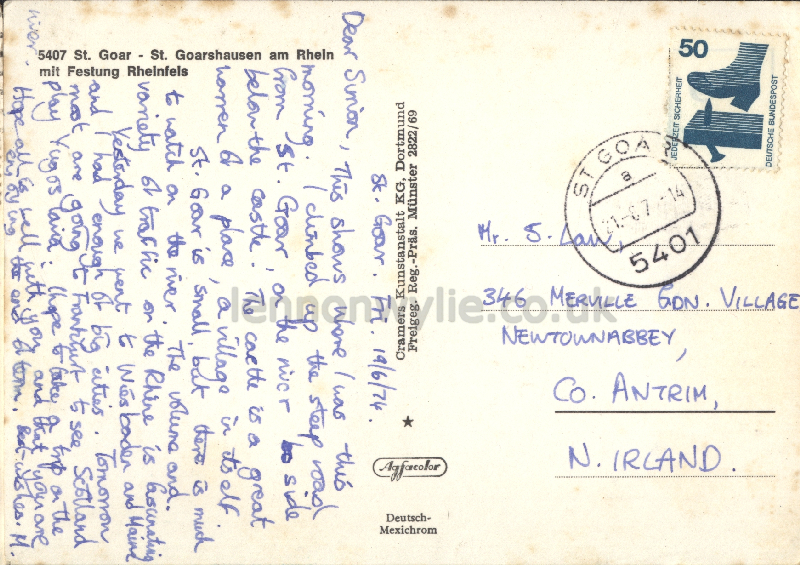 5407 St. Goar - St. Goarshausen am Rhein
mit Festung Rheinfels
St. Goar. Fri. 19/6/74.
Dear Simon, This shows where I was this
morning. I climbed up the steep road
from St. Goar, on the river side
below the castle. The castle is a great
warren of a place, a village in itself
St. Goar is small, but there is much
to watch on the river. The volume and
variety of traffic on the Rhine is fascinating
Yesterday we went to Wiesbaden and Mainz
and had enough of big cities. Tomorrow
most are going to Frankfurt to see Scotland
play Yugoslavia. I hope to take a trip on the
river. Hope all is well with you and that you are
enjoying the end of term. Best wishes. M.
Cramers Kunstanstalt KG, Dortmund
Freigeg. Reg.-Präs. Münster 2822/69
Agfacolor
Deutsch-
Mexichrom
50
JEDERZEIT SICHERHEIT
DEUTSCHE BUNDESPOST
ST GOAR
a
5401
Mr. S. Law,
346 MERVILLE GDN. VILLAGE
NEWTOWNABBEY,
CO. ANTRIM,
N. IRLAND.
lennonwylie.co.uk